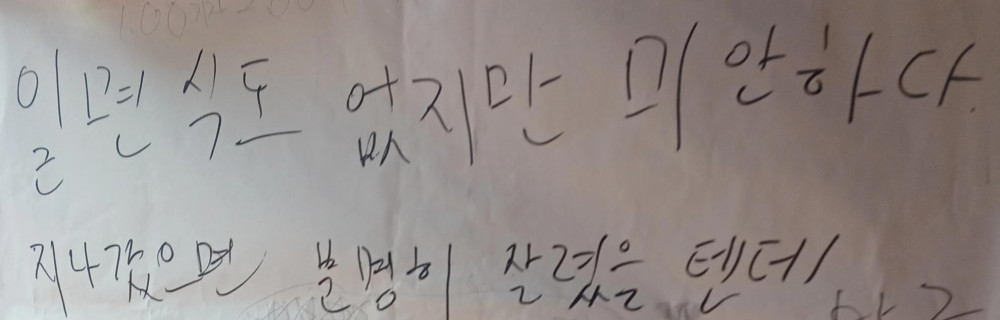 일면식도 없지만 미안하다.
지나갔으면 분명히 잘렸을 텐데